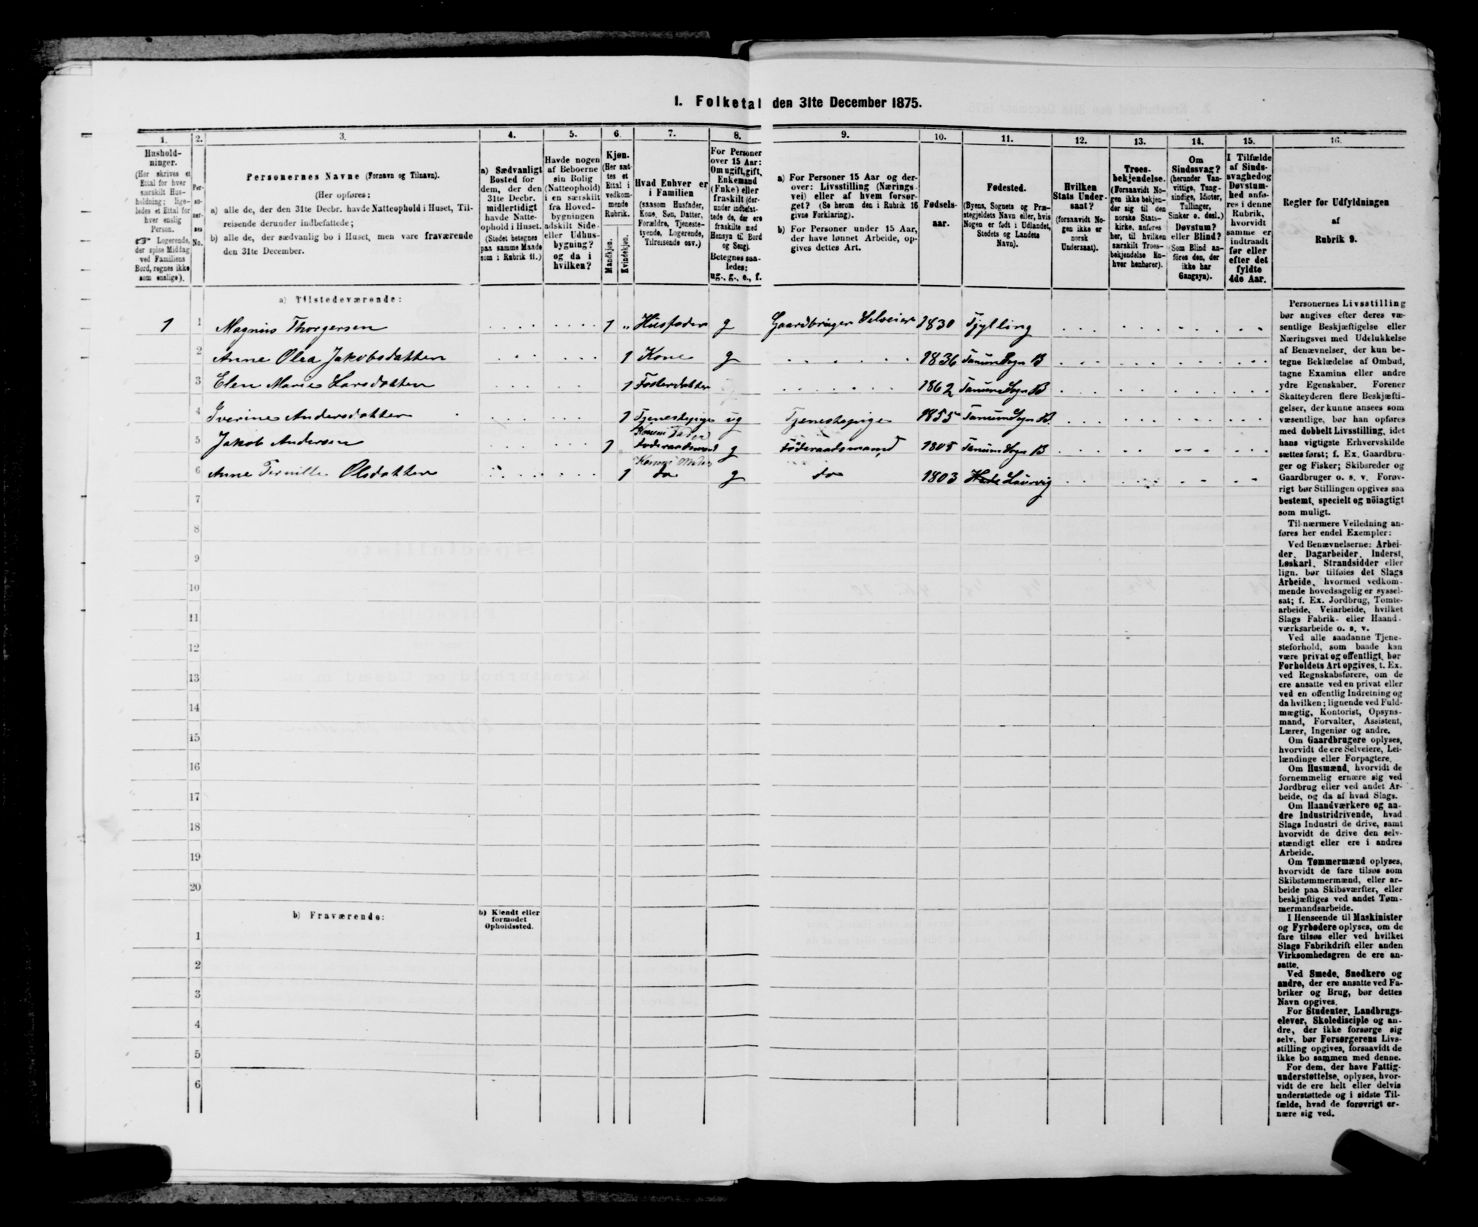 1. Folketal den 31te December 1875.
1. 2. 3. 4. 5. 6. 7. 8. 9. 10. 11. 12. 13. 14. 15. 16.
Hushold-
ninger.
(Her skrives et
Ettal for hver
særskilt Hus-
holdning; lige-
ledes et Ettal for
hver enslig
Person.
Logerende,
der spise Middag
ved Familiens
Bord, regnes ikke
som enslige).
Per-
soner-
nes
No.
Personernes Navne (Fornavn og Tilnavn).
(Her opføres:
a) alle de, der den 31te Decbr. havde Natteophold i Huset, Til-
reisende derunder indbefattede;
b) alle de, der sædvanlig bo i Huset, men vare fraværende
den 31te December.
a) Sædvanligt
Bosted for
dem, der den
31te Decbr.
midlertidigt
havde Natte-
ophold i Huset.
(Stedet betegnes
paa samme Maade
som i Rubrik 11.)
Havde nogen
af Beboerne
sin Bolig
(Natteophold)
i en særskilt
fra Hoved-
bygningen
adskilt Side-
eller Udhus-
bygning?
og da i
hvilken?
Kjøn.
(Her sæt-
tes et
Ettal i
vedkom-
mende
Rubrik.
Mandkjøn.
Kvindekjøn.
Hvad Enhver er
i Familien
(saasom Husfader,
Kone, Søn, Datter,
Forældre, Tjeneste-
tyende, Logerende,
Tilreisende osv.)
For Personer
over 15 Aar:
Om ugift, gift,
Enkemand
(Enke) eller
fraskilt (der-
under indbefat-
tede de, der ere
fraskilte med
Hensyn til Bord
og Seng).
Betegnes saa-
ledes:
ug., g., e., f.
a) For Personer 15 Aar og der-
over: Livsstilling (Nærings-
vei) eller af hvem forsør-
get? (Se herom den i Rubrik 16
givne Forklaring).
b) For Personer under 15 Aar,
der have lønnet Arbeide, op-
gives dettes Art.
Fødsels-
aar.
Fødested.
(Byens, Sognets og Præ-
stegjeldets Navn eller, hvis
Nogen er født i Udlandet,
Stedets og Landets
Navn).
Hvilken
Stats Under-
saat?
(forsaavidt No-
gen ikke er
norsk
Undersaat).
Troes-
bekjendelse.
(Forsaavidt No-
gen ikke bekjen-
der sig til den
norske Stats-
kirke, anføres
her, til hvilken
særskilt Troes-
bekjendelse En-
hver henhører).
Om
Sindssvag?
(herunder Van-
vittige, Tung-
sindige, Idioter,
Tullinger,
Sinker o. desl.)
Døvstum?
eller Blind?
Som Blind an-
føres den, der
ikke har
Gangsyn).
I Tilfælde
af Sinds-
svaghed og
Døvstum-
hed anfø-
res i denne
Rubrik,
hvorvidt
samme er
indtraadt
før eller
efter det
fyldte
4de Aar.
Regler for Udfyldningen
af
Rubrik 9.
a) Tilstedeværende:
1 1 Magnus Thorgersen 1 Husfader g Gaardbruger Selveier 1830 Tjylling
2 Anne Olea Jakobsdatter 1 Kone g 1836 Tanum Sogn B
3 Elen Marie Larsdatter 1 Fosterdatter 1862 Tanum Sogn B
4 Iverine Andersdatter 1 Tjenestepige ug Tjenestepige 1855 Tanum Sogn B.
Konens Fader
5 Jakob Andersen 1 Føderaadsmand g Føderaadsmand 1805 Tanum Sogn B
Konens Moder
6 Anne Olsdatter 1 do g do 1803 Laurvig
7
8
9
10
11
12
13
14
15
16
17
18
19
20
b) Fraværende:
b) Kjendt eller
formodet
Opholdssted.
1
2
3
4
5
6
Personernes Livsstilling
bør angives efter deres væ-
sentlige Beskjæftigelse eller
Næringsvei med Udelukkelse
af Benævnelser, der kun be-
tegne Beklædelse af Ombud,
tagne Examina eller andre
ydre Egenskaber. Forener
Skatteyderen flere Beskjæfti-
gelser, der kunne ansees som
væsentlige, bør han opføres
med dobbelt Livsstilling, idet
hans vigtigste Erhvervskilde
sættes først; f. Ex. Gaardbru-
ger og Fisker; Skibsreder og
Gaardbruger o. s. v. Forøv-
rigt bør Stillingen opgives saa
bestemt, specielt og nøiagtigt
som muligt.
Til nærmere Veiledning an-
føres her endel Exempler:
Ved Benævnelserne: Arbei-
der, Dagarbeider, Inderst,
Løskarl, Strandsidder eller
lign. bør tilføies det Slags
Arbeide, hvormed vedkom-
mende hovedsagelig er syssel-
sat; f. Ex. Jordbrug, Tomte-
arbeide, Veiarbeide, hvilket
Slags Fabrik- eller Haand-
værksarbeide o. s. v.
Ved alle saadanne Tjene-
steforhold, som baade kan
være privat og offentligt, bør
Forholdets Art opgives, t. Ex.
ved Regnskabsførere, om de
ere ansatte ved en privat eller
ved en offentlig Indretning og
da hvilken; lignende ved Fuld-
mægtig, Kontorist, Opsyns-
mand, Forvalter, Assistent,
Lærer, Ingeniør og andre.
Om Gaardbrugere oplyses,
hvorvidt de ere Selveiere, Lei-
lændinge eller Forpagtere.
Om Husmænd, hvorvidt de
fornemmelig ernære sig ved
Jordbrug eller ved andet Ar-
beide, og da af hvad Slags.
Om Haandværkere og an-
dre Industridrivende, hvad
Slags Industri de drive, samt
hvorvidt de drive den selv-
stændigt eller ere i andres
Arbeide.
Om Tømmermænd oplyses,
hvorvidt de fare tilsøs som
Skibstømmermænd, eller ar-
beide paa Skibsværfter, eller
beskjæftiges ved andet Tøm-
mermandsarbeide.
I Henseende til Maskinister
og Fyrbødere oplyses, om de
fare tilsøs eller ved hvilket
Slags Fabrikdrift eller anden
Virksomhedsgren de ere an-
satte.
Ved Smede, Snedkere og
andre, der ere ansatte ved Fa-
briker og Brug, bør dettes
Navn opgives.
For Studenter, Landbrugs-
elever, Skoledisciple og an-
dre, der ikke forsørge sig
selv, bør Forsørgerens Livs-
stilling opgives, forsaavidt de
ikke bo sammen med denne.
For dem, der have Fattig-
understøttelse, oplyses, hvor-
vidt de ere helt eller delvis
understøttede og i sidste Til-
fælde, hvad de forøvrigt er-
nære sig ved.